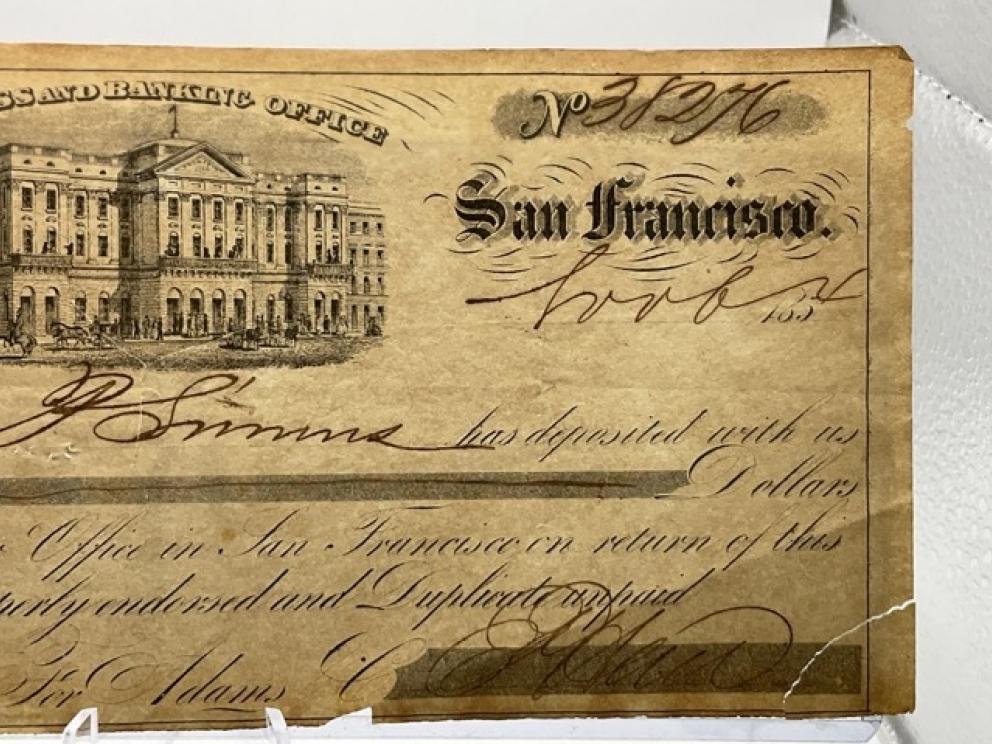 SS AND BANKING OFFICE
No 38276
San Francisco.
185
Simms has deposited with us
Dollars
Office in San Francisco on return of this
perly endorsed and Duplicate unpaid
For Adams & C